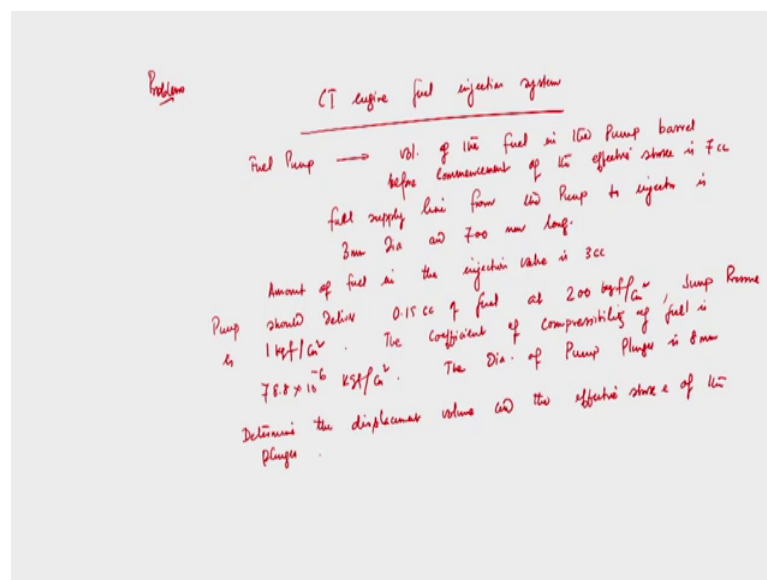 Problem
CI engine fuel injection system
Fuel Pump → vol. of the fuel in the Pump barrel
before commencement of the effective stroke is 7 cc
fuel supply line from the Pump to injector is
3 mm Dia and 700 mm long.
Amount of fuel in the injection valve is 3 cc
Pump should deliver 0.15 cc of fuel at 200 kgf/cm², Sump Pressure
is 1 kgf/cm². The coefficient of compressibility of fuel is
78.8 × 10⁻⁶ kgf/cm². The Dia. of Pump Plunger is 8 mm
Determine the displacement volume and the effective stroke of the
plunger.